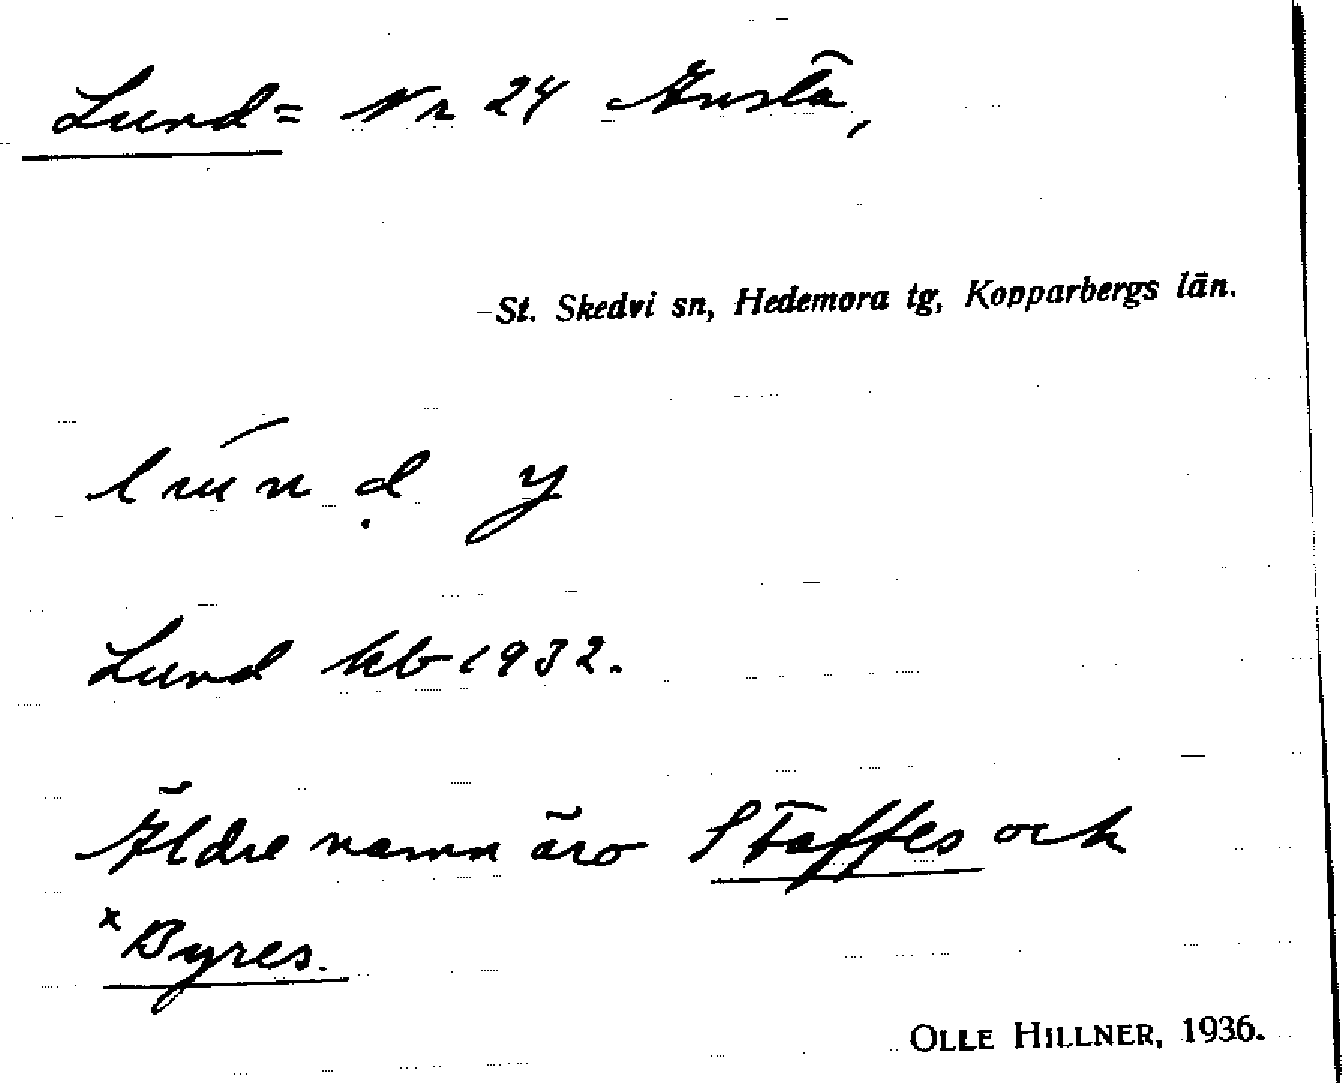 Lund = Nr 24 Knusta,
St. Skedvi sn, Hedemora tg, Kopparbergs län.
lund y
Lund kb 1932.
Äldre namn äro Staffes och
×Byres.
OLLE HILLNER, 1936.